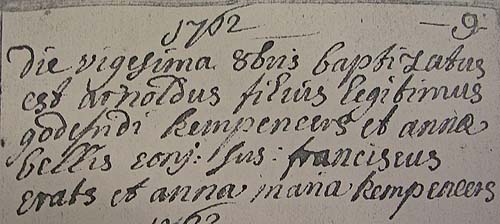 1762 - 9
Die vigesima 8bris baptizatus
est Arnoldus filius legitimus
godefridi kempeneers et anna
bellis conj: sus: franciscus
erats et anna maria kempeneers
1762